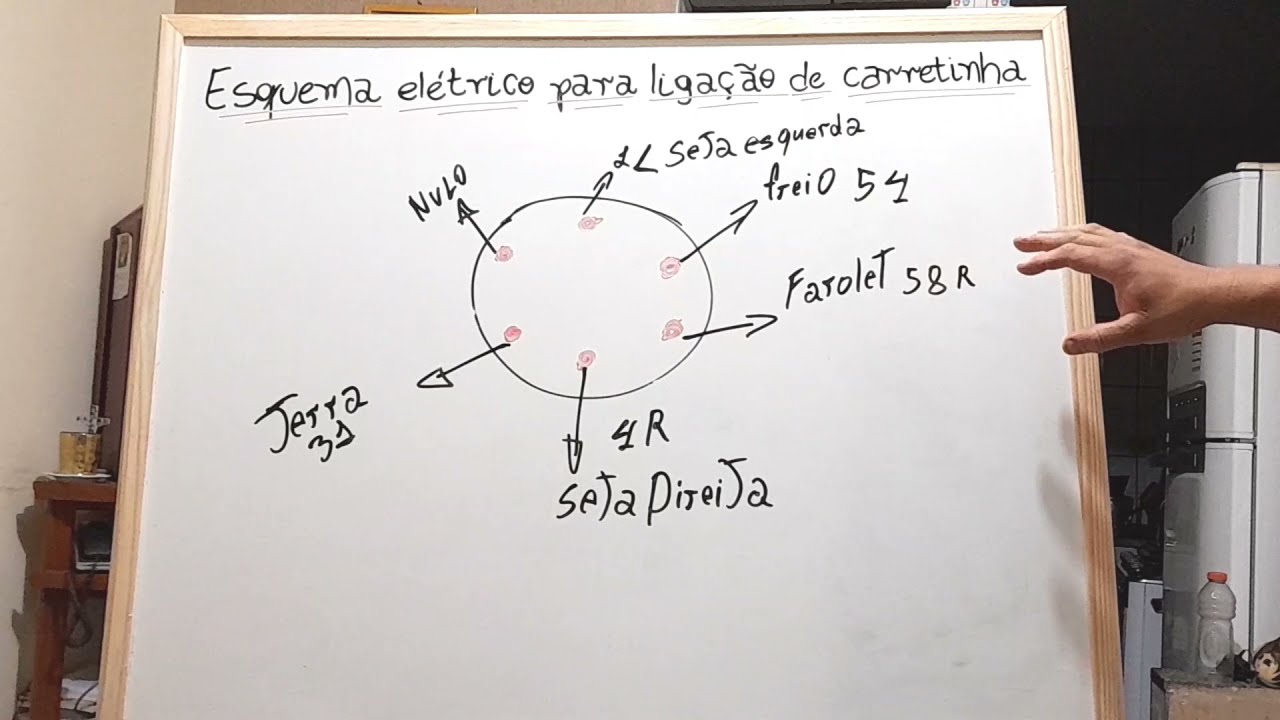 Esquema elétrico para ligação de carretinha
1L Seta esquerda
Nulo
freio 54
Farolet 58R
Terra
31
4R
Seta Direita